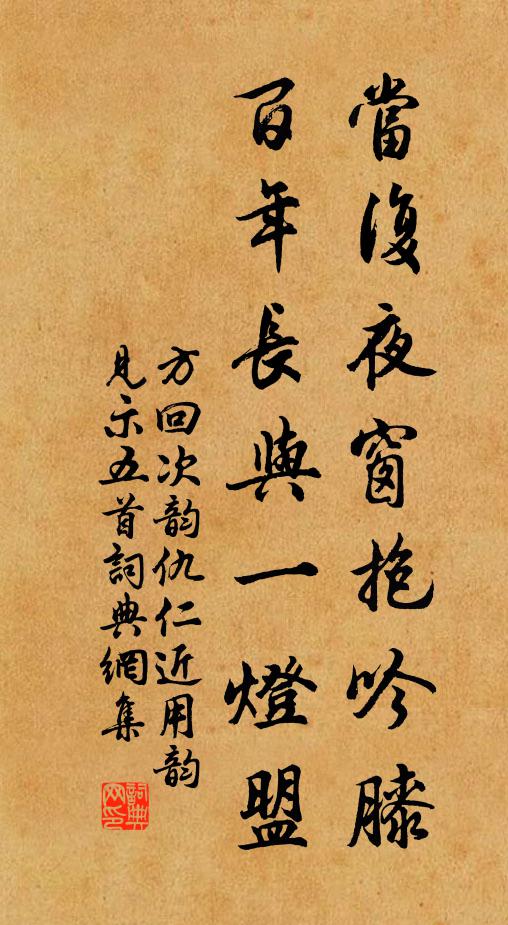 當復夜窗抱吟膝
百年長與一燈盟
方回次韵仇仁近用韵
見示五首詞典網集
詞典网印